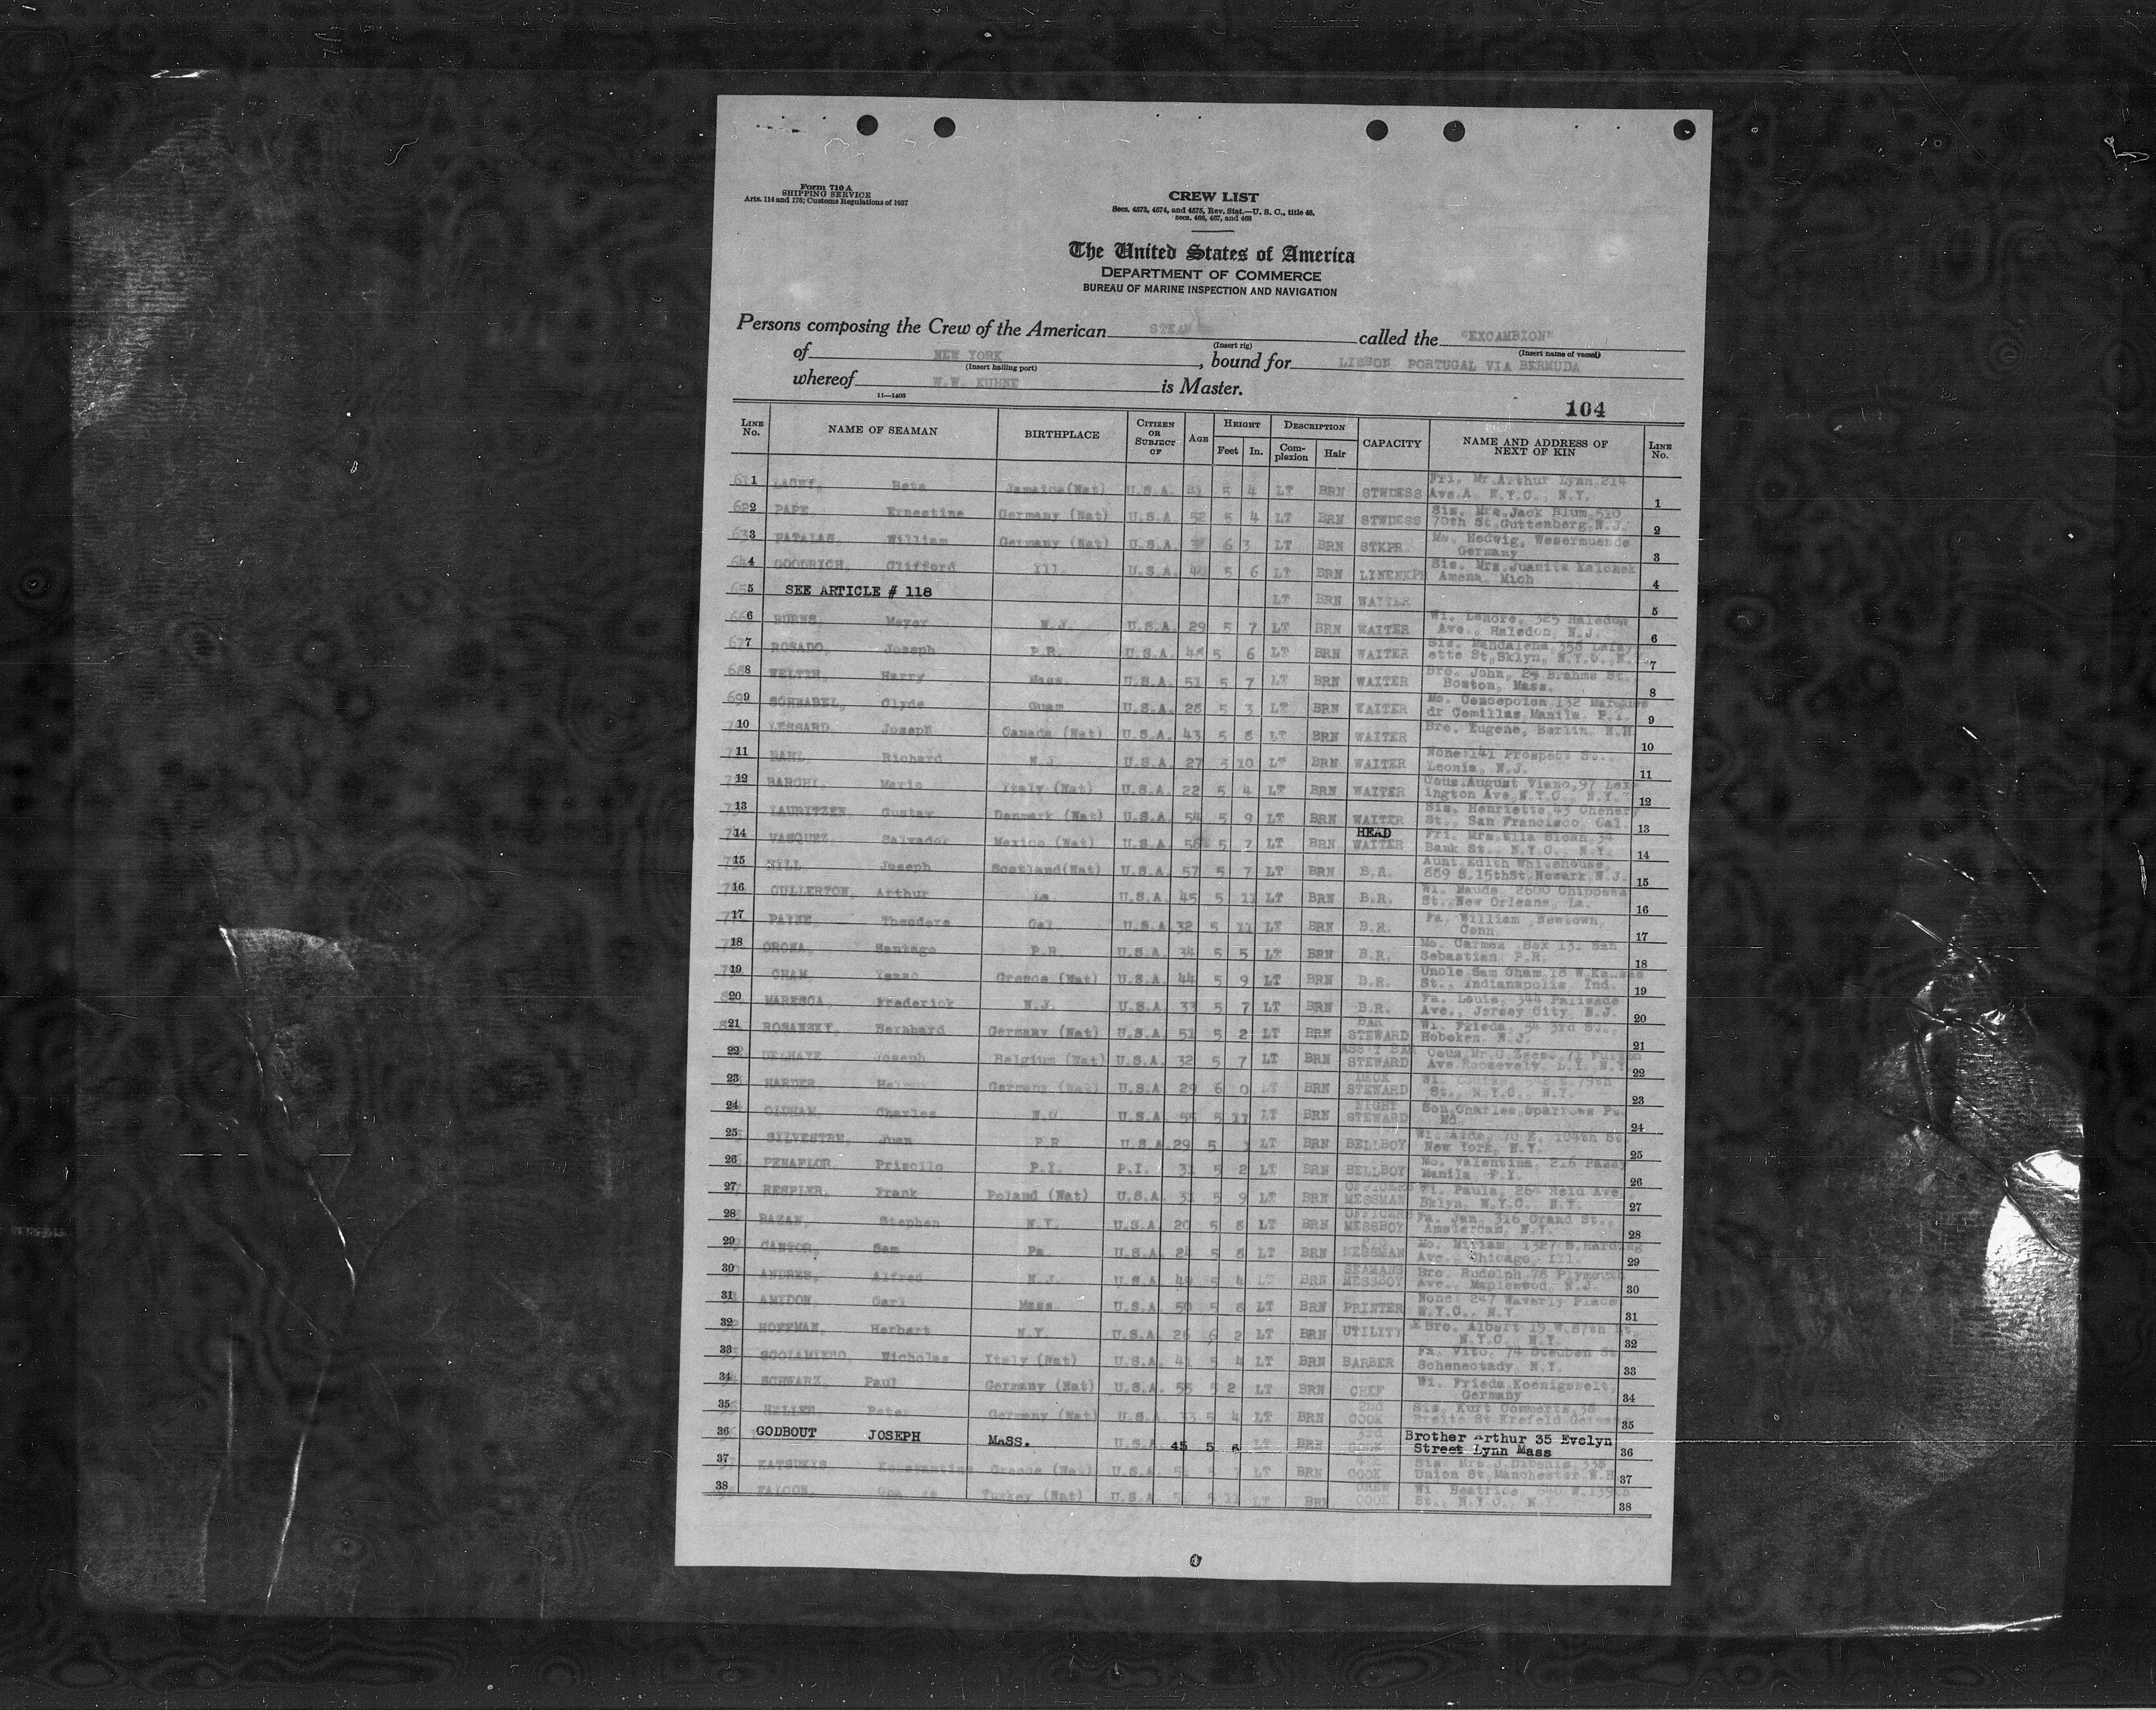 Form 710 A
SHIPPING SERVICE
Arts. 114 and 176; Customs Regulations of 1937
CREW LIST
Secs. 4573, 4574, and 4575, Rev. Stat.—U. S. C., title 46,
secs. 466, 467, and 468
The United States of America
DEPARTMENT OF COMMERCE
BUREAU OF MARINE INSPECTION AND NAVIGATION
Persons composing the Crew of the American STEAM called the "EXCAMBION"
(Insert rig) (Insert name of vessel)
of NEW YORK, bound for LISBON PORTUGAL VIA BERMUDA
(Insert hailing port)
whereof W.W. KUHNE is Master.
11—1403
104
LINE No. NAME OF SEAMAN BIRTHPLACE CITIZEN OR SUBJECT OF AGE HEIGHT Feet In. DESCRIPTION Complexion Hair CAPACITY NAME AND ADDRESS OF NEXT OF KIN LINE No.
1 LACEY, Beta Jamaica(Nat) U.S.A. 5 4 LT BRN STWDESS Fri. Mr Arthur Lynn 214 Ave.A. N.Y.C., N.Y. 1
2 PAPE, Ernestine Germany (Nat) U.S.A 52 5 4 LT BRN STWDESS Sis. Mrs. Jack Blum 510 70th St.Guttenberg,N.J. 2
3 PATALAS, William Germany (Nat) U.S.A. 6 3 LT BRN STKPR. Hedwig, Wesermuende Germany 3
4 GOODRICH, Clifford Ill. U.S.A. 5 6 LT BRN Sis. Mrs. Juanita Mich 4
5 SEE ARTICLE # 118 LT BRN WAITER 5
6 BURNS, Meyer N.J. U.S.A. 29 5 7 LT BRN WAITER Wi. Lenore, 325 Haledon Ave., Haledon, N.J. 6
7 ROSADO, Joseph P.R. U.S.A. 5 6 LT BRN WAITER Sis. Mandalena, 358 Lafayette St,Bklyn, N.Y.C., 7
8 WELTER, Harry Mass. U.S.A. 51 5 7 LT BRN WAITER Bro. John, Brahms St. Boston, Mass. 8
9 SCHWABEL, Clyde Guam U.S.A. 28 5 3 LT BRN WAITER Mo. 132 Comillas Manila, P.I. 9
10 LESSARD, Joseph Canada (Nat) U.S.A. 43 5 8 LT BRN WAITER Bro. Eugene, Berlin, N.H 10
11 DAHL, Richard N.J. U.S.A. 27 5 10 LT BRN WAITER None: 141 Prospect St., Leonia, N.J. 11
12 BARCHI, Mario Italy (Nat) U.S.A. 22 5 4 LT BRN WAITER Cous.August Viano,97 Lexington Ave,N.Y.C., N.Y. 12
13 LAURITZEN, Gustav Denmark (Nat) U.S.A. 54 5 9 LT BRN WAITER Sis. Henrietta,43 Chenery St., San Francisco, Cal. 13
14 VASQUEZ, Salvador Mexico (Nat) U.S.A. 5 7 LT BRN HEAD WAITER Fri. Mrs.Ella Sloan,37 Bank St., N.Y.C., N.Y. 14
15 Joseph Scotland(Nat) U.S.A. 57 5 7 LT BRN B.R. Aunt Edith Whitehouse, 889 S.15thSt,Newark,N.J. 15
16 CULLERTON, Arthur La. U.S.A. 45 5 11 LT BRN B.R. Wi. Maude, 2600 Chippewa St.,New Orleans, La. 16
17 PAYNE, Theodore Cal. U.S.A 32 5 11 LT BRN B.R. Fa. William, Newtown, Conn. 17
18 ORONA, Santago P.R. U.S.A. 34 5 5 LT BRN B.R. Mo. Carmen, Box 131 San Sebastian, P.R. 18
19 CHAM, Greece (Nat) U.S.A. 44 5 9 LT BRN B.R. Uncle Sam Cham,18 W.Kansas St., Indianapolis, Ind. 19
20 MARESCA, Frederick N.J. U.S.A 33 5 7 LT BRN B.R. Fa. Louis, 344 Palisade Ave., Jersey City, N.J. 20
21 ROSANSKY, Bernhard Germany (Nat) U.S.A. 51 5 2 LT BRN BAR STEWARD Wi. Frieda, 54 3rd St., Hoboken, N.J. 21
22 DELHAYE Joseph Belgium (Nat) U.S.A. 32 5 7 LT BRN ASS'T BAR STEWARD Cous.Mr. 71 Fulton Ave.Roosevelt, L.I. N.Y 22
23 HARDER Germany (Nat) U.S.A. 29 6 0 LT BRN DECK STEWARD Wi. 79th St., N.Y.C., N.Y. 23
24 OLDHAM, Charles N.C U.S.A 55 5 11 LT BRN NIGHT STEWARD Son Charles,Sparrows Pt. Md. 24
25 SILVESTRE, Juan P.R U.S.A.29 5 LT BRN BELLBOY Wi. Aida, 70 E. 104th St New York, N.Y. 25
26 PENAFLOR, Priscilo P.I. P.I. 5 2 LT BRN BELLBOY Mo. Valentina, 216 Pasay Manila, P.I. 26
27 RESPLER, Frank Poland (Nat) U.S.A. 5 9 LT BRN OFFICERS MESSMAN Wi. Paula, 264 Reid Ave, Bklyn, N.Y.C., N.Y. 27
28 BAZAN, Stephen N.Y. U.S.A 20 5 8 LT BRN OFFICERS MESSBOY Fa. Jan, 316 Grand St., Amsterdam, N.Y. 28
29 CANTOR, Sam Pa U.S.A. 5 8 LT BRN MESSMAN Mo. Miriam, 1327 S.Harding Ave., Chicago, Ill. 29
30 ANDRES, Alfred N.J. U.S.A. 49 5 4 LT BRN SEAMANS MESSBOY Bro. Rudolph,78 Plymouth Ave., Maplewood, N.J. 30
31 AMYDON, Carl Mass. U.S.A 50 5 8 LT BRN PRINTER None: 247 Waverly Place N.Y.C., N.Y. 31
32 HOFFMAN, Herbert N.Y. U.S.A. 26 6 2 LT BRN UTILITY Bro. Albert 19 W.87th St, N.Y.C., N.Y. 32
33 SCOLAMIERO, Nicholas Italy (Nat) U.S.A. 41 5 4 LT BRN BARBER Fa. Vito, 74 Steuben St Schenectady, N.Y. 33
34 SCHWARZ, Paul Germany (Nat) U.S.A. 55 5 2 LT BRN CHEF Wi. Frieda, Germany 34
35 HELLER Peter Germany (Nat) U.S.A. 33 5 4 LT BRN 2nd COOK Sis. Kurt Breite St Krefeld 35
36 GODBOUT JOSEPH MASS. U.S.A 45 5 LT BRN 3rd COOK Brother Arthur 35 Evelyn Street Lynn Mass 36
37 KATSUKIS, Konstantine Greece (Nat) U.S.A LT BRN COOK Sis. Mrs. J. Union St,Manchester,N.H 37
38 FALCON, Turkey (Nat) U.S.A 5 11 LT BRN CREW COOK Wi. Beatrice, 640 W.139th St., N.Y.C., N.Y. 38